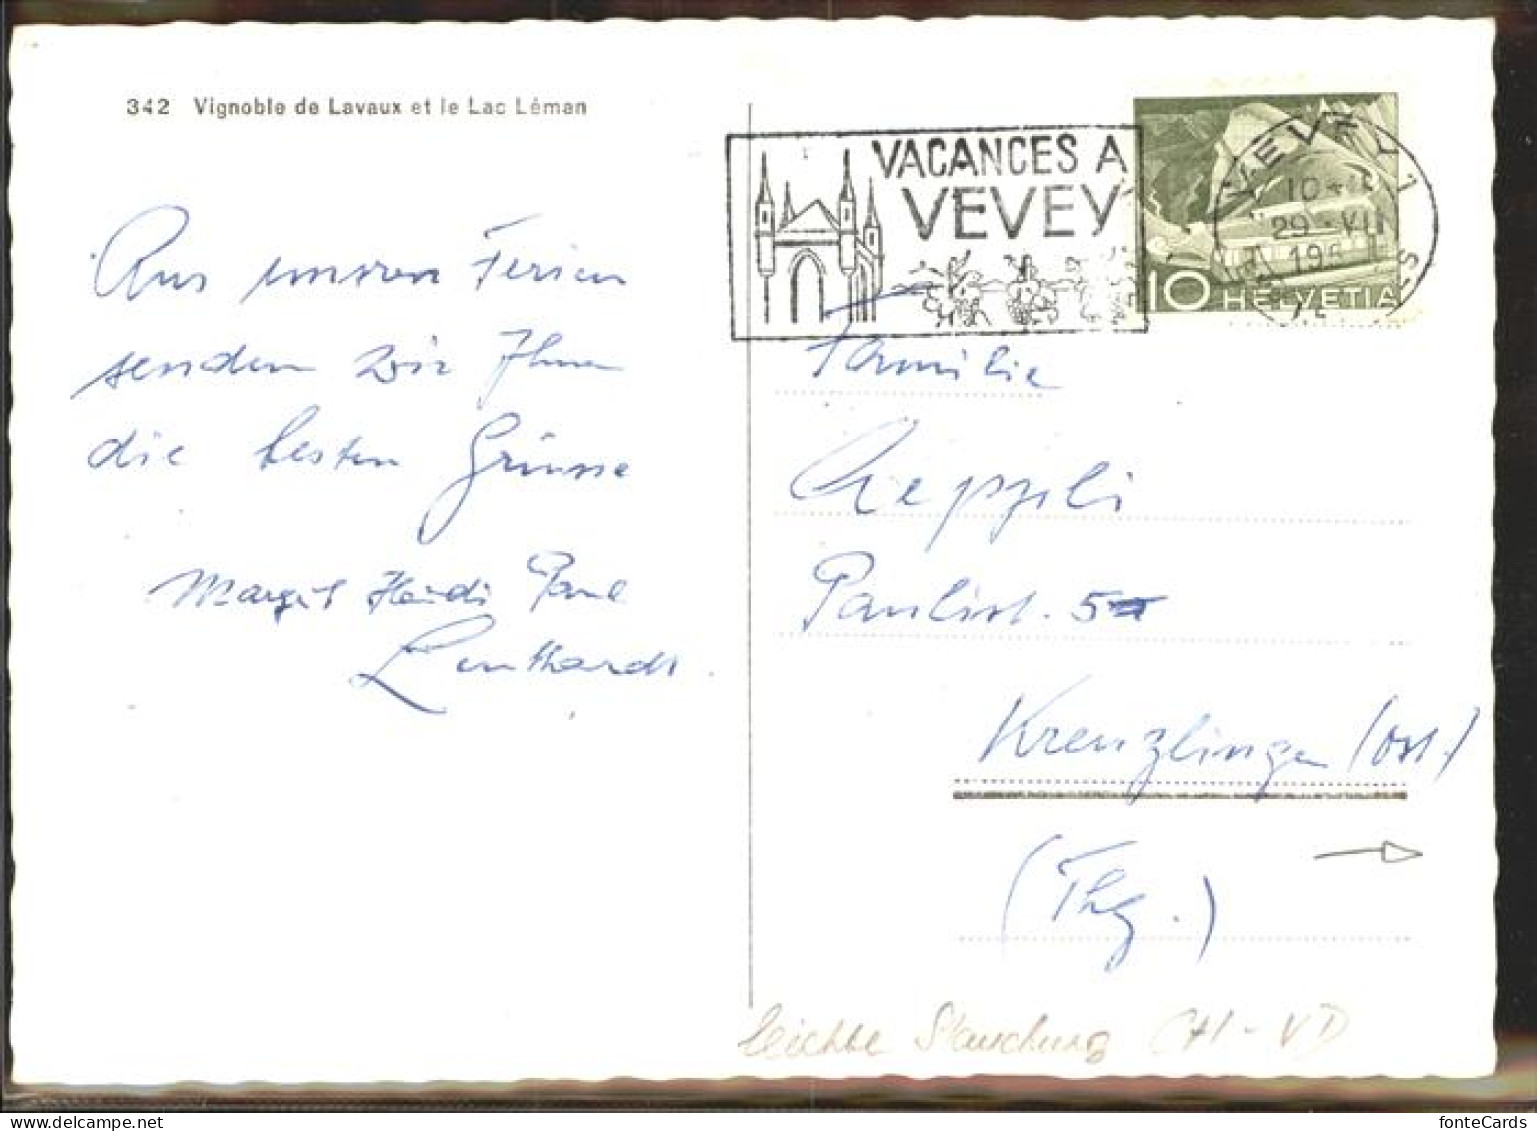 342 Vignoble de Lavaux et le Lac Léman
Aus unseren Ferien
senden wir Ihnen
die besten Grüsse
Margrit Heidi Paul
Leuthardt
VACANCES A
VEVEY
VEVEY 1
29.-VII
196
10 HELVETIA
Familie
Aeppli
Paulistr. 5
Kreuzlingen (ost.)
(Thg.)
leichte Stauchung CH-VD
fonteCards